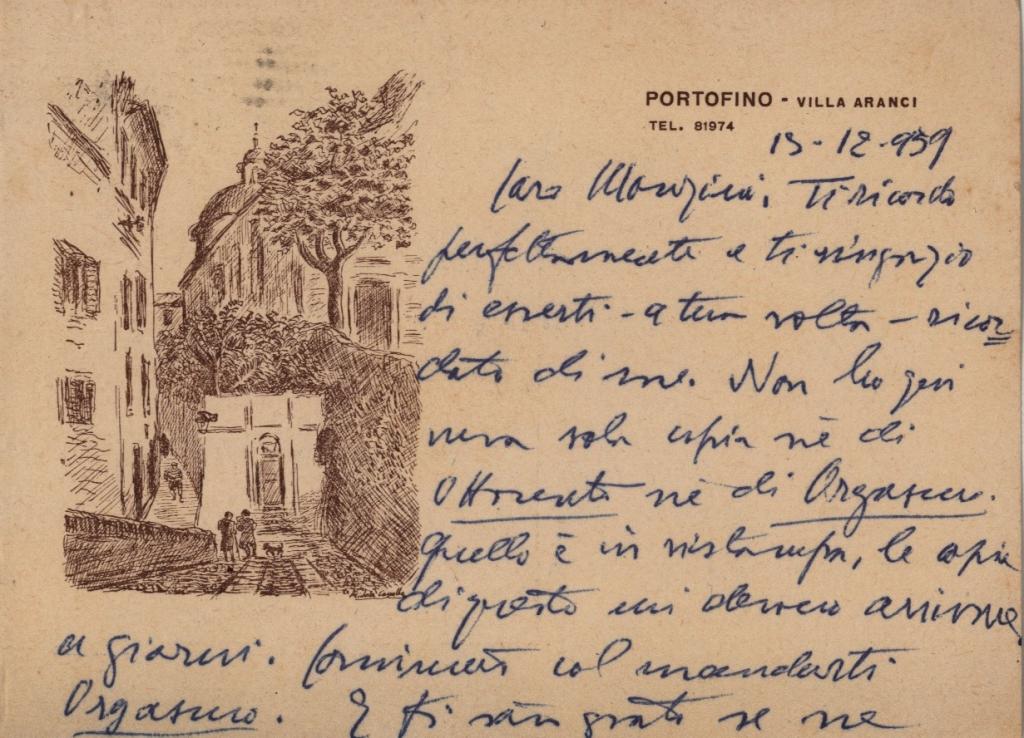 PORTOFINO - VILLA ARANCI
TEL. 81974
13-12-959
Caro Ti ricordo
perfettamente e ti ringrazio
di esserti - a tua volta - ricor=
dato di me. Non ho più
una sola copia nè di
Ottocento nè di Orgasmo.
Quello è in ristampa, le copie
di questo mi devono arrivare
a giorni. Comincerò col mandarti
Orgasmo. E ti sarò grato se ne